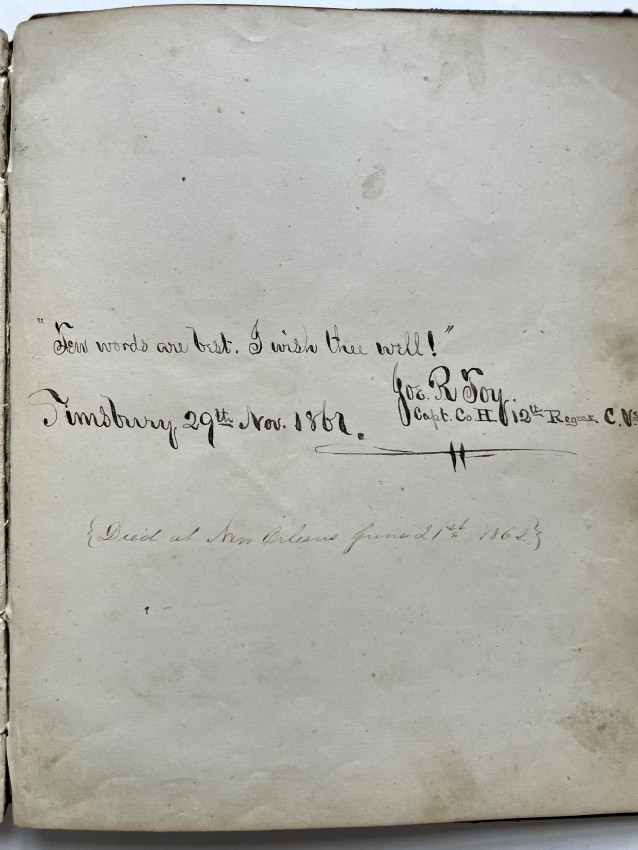 "Few words are best. I wish thee well!"
Jos. R Toy.
Simsbury 29th Nov. 1861.
Capt. Co. H. 12th Regmt. C. Vs
{Died at New Orleans June 21st 1862.}